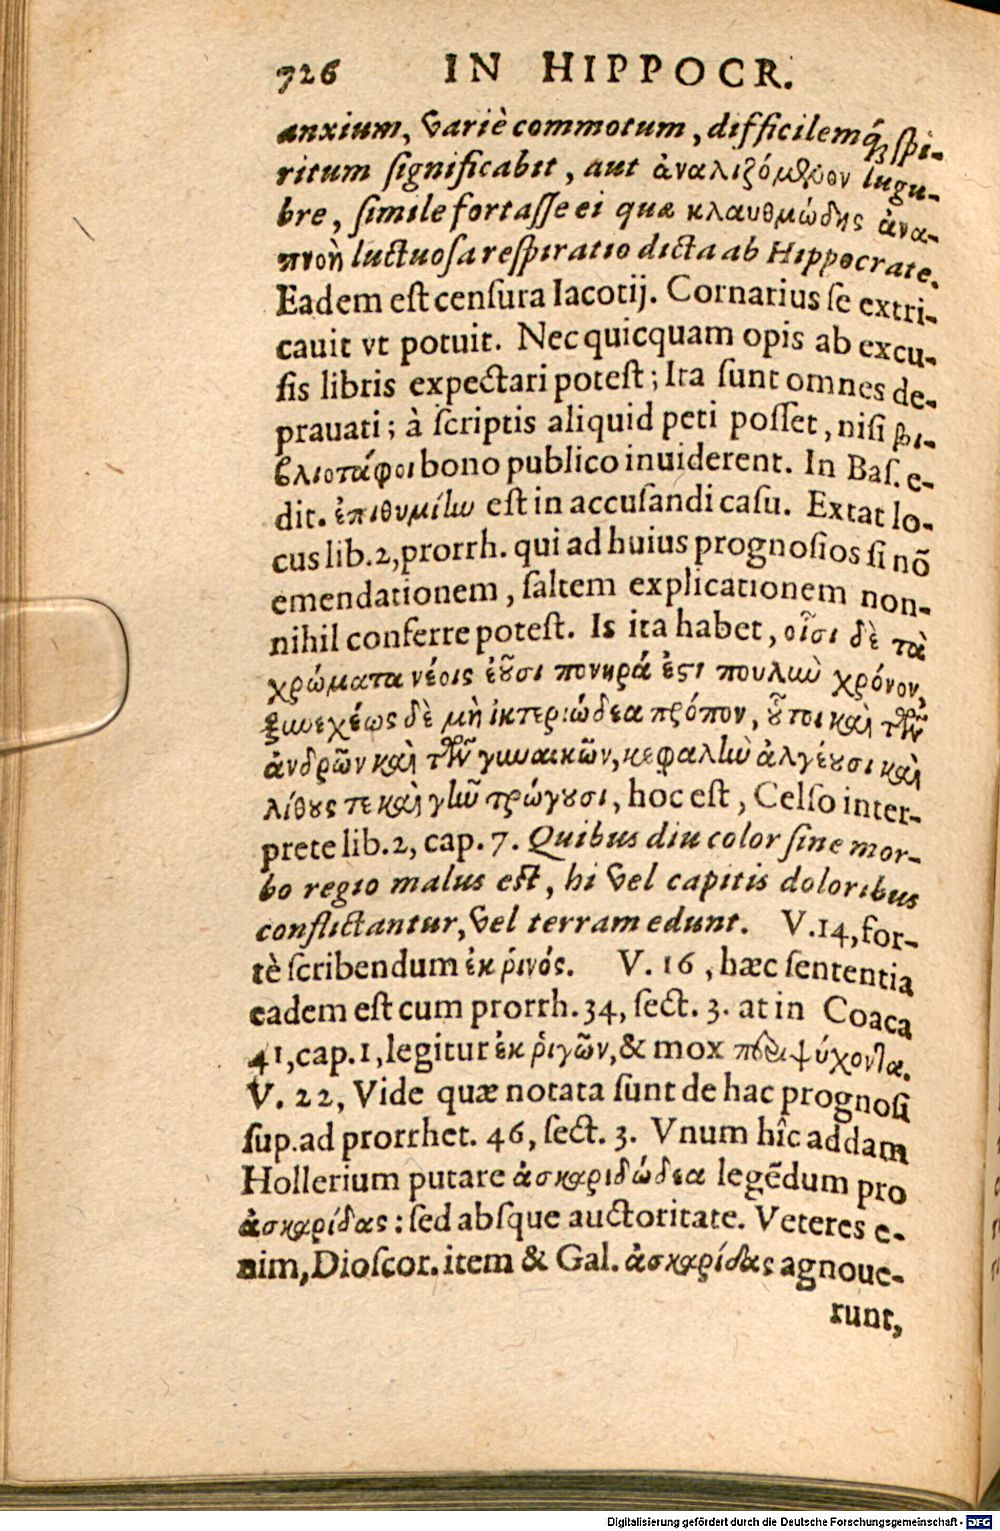 726 IN HIPPOCR.
anxium, variè commotum, difficilemq́; spi-
ritum significabit, aut ἀναλιζόμενον lugu-
bre, simile fortasse ei quæ κλαυθμώδης ἀνα-
πνοὴ luctuosa respiratio dicta ab Hippocrate.
Eadem est censura Iacotij. Cornarius se extri-
cauit vt potuit. Nec quicquam opis ab excu-
sis libris expectari potest; Ita sunt omnes de-
prauati; à scriptis aliquid peti posset, nisi βι-
βλιοτάφοι bono publico inuiderent. In Bas. e-
dit. ἐπιθυμίην est in accusandi casu. Extat lo-
cus lib. 2, prorrh. qui ad huius prognosios si nō
emendationem, saltem explicationem non-
nihil conferre potest. Is ita habet, οἷσι δὲ τὰ
χρώματα νέοις ἐοῦσι πονηρά ἐστι πουλὺν χρόνον,
ξυνεχέως δὲ μὴ ἰκτεριώδεα τρόπον, οὗτοι καὶ τῶν
ἀνδρῶν καὶ τῶν γυναικῶν, κεφαλὴν ἀλγέουσι καὶ
λίθους τε καὶ γῆν τρώγουσι, hoc est, Celso inter-
prete lib. 2, cap. 7. Quibus diu color sine mor-
bo regio malus est, hi vel capitis doloribus
conflictantur, vel terram edunt. V. 14, for-
tè scribendum ἐκ ῥινός. V. 16, hæc sententia
eadem est cum prorrh. 34, sect. 3. at in Coaca
41, cap. 1, legitur ἐκ ῥιγῶν, & mox περιψύχοντα.
V. 22, Vide quæ notata sunt de hac prognosi
sup. ad prorrhet. 46, sect. 3. Vnum hîc addam
Hollerium putare ἀσκαριδώδεα legēdum pro
ἀσκαρίδας: sed absque auctoritate. Veteres e-
nim, Dioscor. item & Gal. ἀσκαρίδας agnoue-
runt,
Digitalisierung gefördert durch die Deutsche Forschungsgemeinschaft - DFG